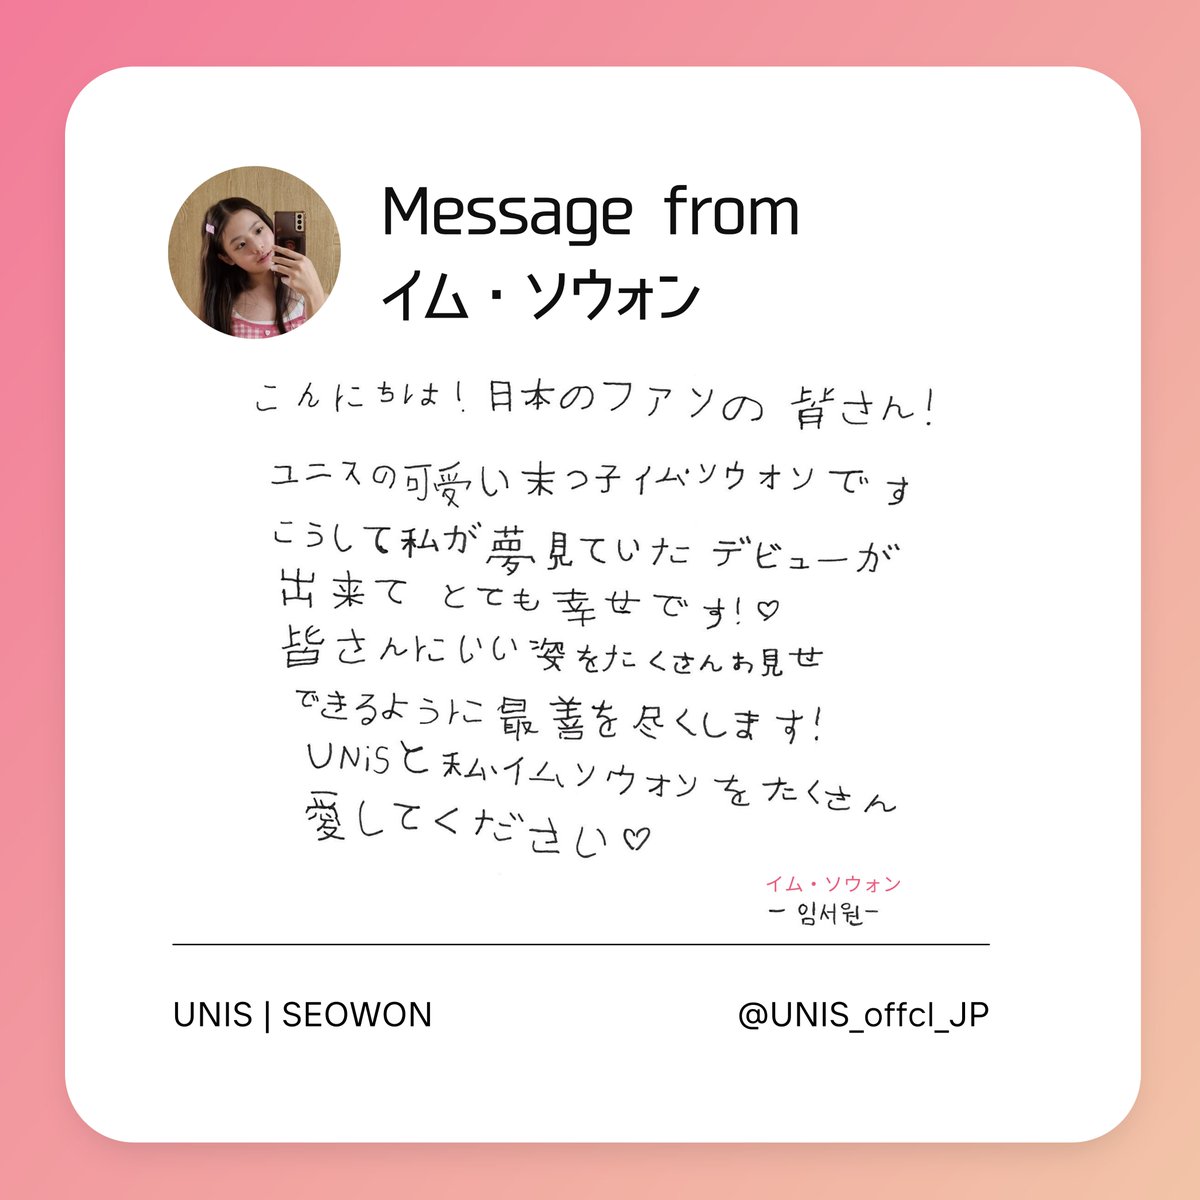 Message from
イム・ソウォン
こんにちは！日本のファンの皆さん！
ユニスの可愛い末っ子イム・ソウォンです
こうして私が夢見ていたデビューが
出来てとても幸せです！♡
皆さんにいい姿をたくさんお見せ
できるように最善を尽くします！
UNiSと私、イム・ソウォンをたくさん
愛してください♡
イム・ソウォン
- 임서원-
UNIS | SEOWON
@UNIS_offcl_JP